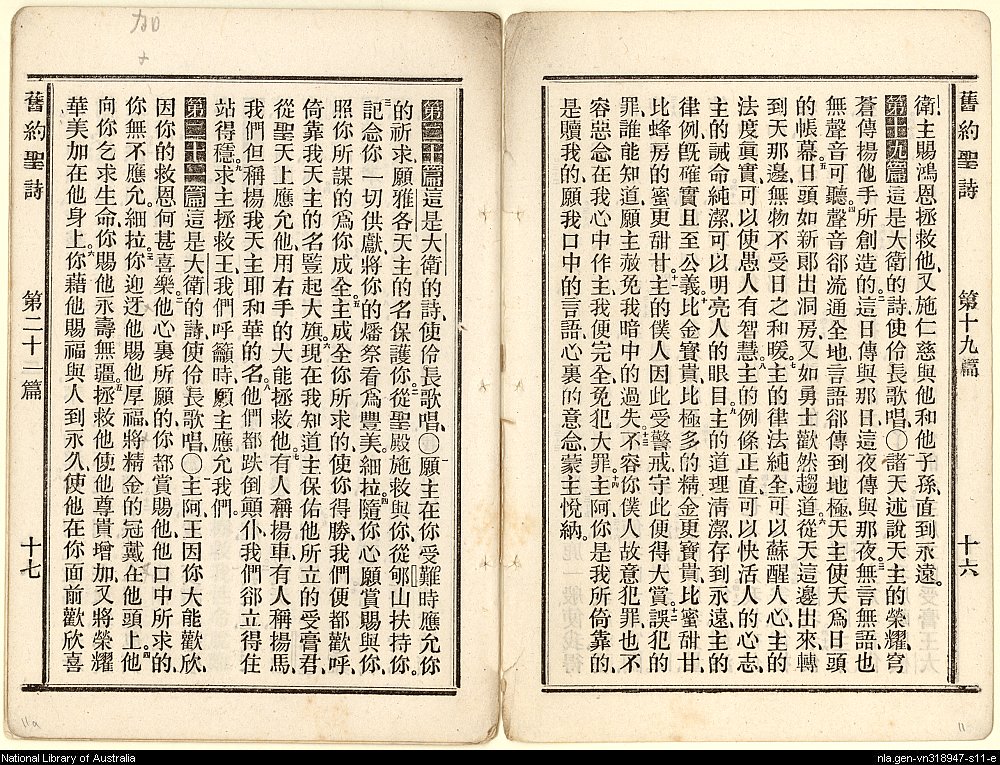 舊約聖詩 第十九篇 十六
衛主賜鴻恩拯救他又施仁慈與他和他子孫直到永遠
第十九篇這是大衛的詩使伶長歌唱〇諸天述說天主的榮耀穹
蒼傳揚他手所創造的這日傳與那日這夜傳與那夜無言無語也
無聲音可聽聲音郤流通全地言語郤傳到地極天主使天爲日頭
的帳幕日頭如新郞出洞房又如勇士歡然趨道從天這邊出來轉
到天那邊無物不受日之和暖主的律法純全可以蘇醒人心主的
法度眞實可以使愚人有智慧主的例條正直可以快活人的心志
主的誡命純潔可以明亮人的眼目主的道理淸潔存到永遠主的
律例旣確實且至公義比金寳貴比極多的精金更寳貴比蜜甜甘
比蜂房的蜜更甜甘主的僕人因此受警戒守此便得大賞誤犯的
罪誰能知道願主赦免我暗中的過失不容你僕人故意犯罪也不
容惡念在我心中作主我便完全免犯大罪主阿你是我所倚靠的
是贖我的願我口中的言語心裏的意念蒙主悅納
第二十篇這是大衛的詩使伶長歌唱〇願主在你受難時應允你
的祈求願雅各天主的名保護你從聖殿施救與你從郇山扶持你
記念你一切供獻將你的燔祭看爲豐美細拉隨你心願賞賜與你
照你所謀的爲你成全主成全你所求的使你得勝我們便都歡呼
倚靠我天主的名豎起大旗現在我知道主保佑他所立的受膏君
從聖天上應允他用右手的大能拯救他有人稱揚車有人稱揚馬
我們但稱揚我天主耶和華的名他們都跌倒顚仆我們郤立得住
站得穩求主拯救王我們呼籲時願主應允我們
第二十一篇這是大衛的詩使伶長歌唱〇主阿王因你大能歡欣
因你的救恩何甚喜樂他心裏所願的你都賞賜他他口中所求的
你無不應允細拉你迎迓他賜他厚福將精金的冠戴在他頭上他
向你乞求生命你賜他永壽無疆拯救他使他尊貴增加又將榮耀
華美加在他身上你藉他賜福與人到永久使他在你面前歡欣喜
舊約聖詩 第二十一篇 十七
National Library of Australia
nla.gen-vn318947-s11-e